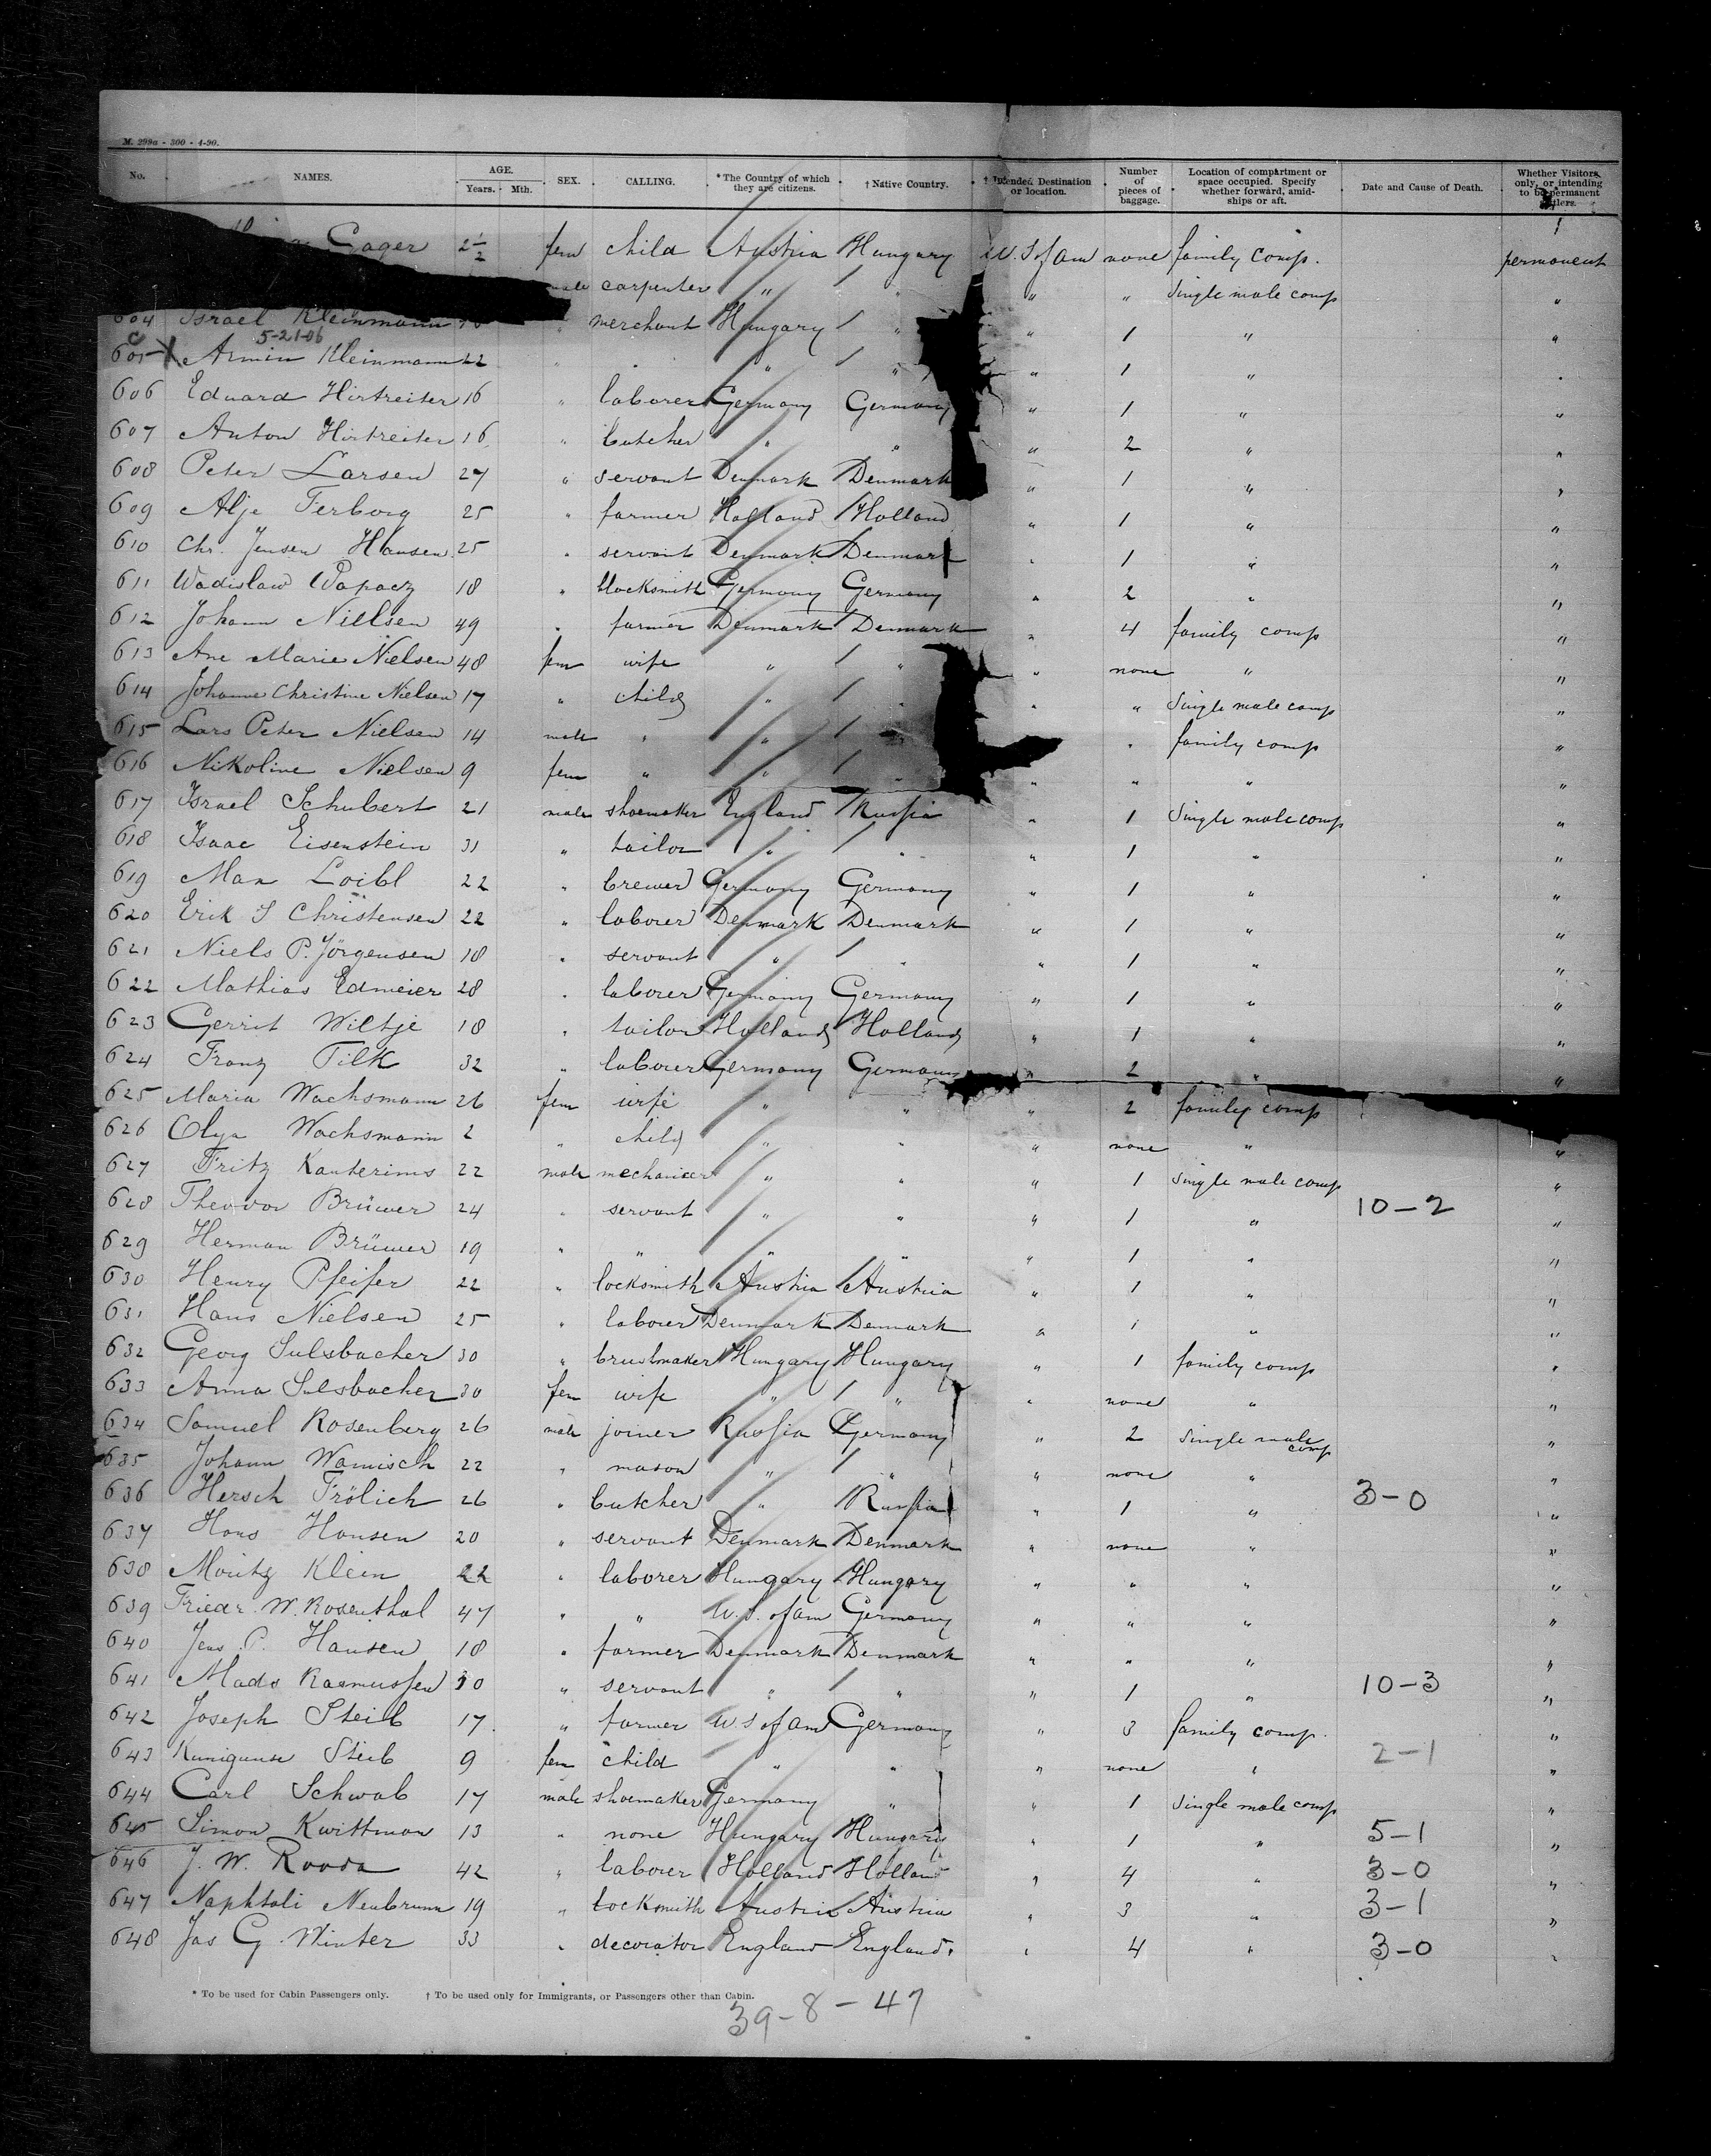 M. 299a - 300 - 4-90.
No. NAMES. AGE. Years. Mth. SEX. CALLING. *The Country of which they are citizens. † Native Country. † Intended Destination or location. Number of pieces of baggage. Location of compartment or space occupied. Specify whether forward, amidships or aft. Date and Cause of Death. Whether Visitors only, or intending to be permanent settlers.
Gager 2½ fem child Austria Hungary U. S of am none family comp. permanent
male carpenter " " " " single male comp "
604 Israel Kleinmann " merchant Hungary " " 1 " "
5-21-06
c
605 X Armin Kleinmann 22 " " " " " 1 " "
606 Eduard Hirtreiter 16 " laborer Germany Germany " 1 " "
607 Anton Hirtreiter 16 " butcher " " " 2 " "
608 Peter Larsen 27 " servant Denmark Denmark " 1 " "
609 Alje Ferborg 25 " farmer Holland Holland " 1 " "
610 Chr. Jensen Hansen 25 " servant Denmark Denmark " 1 " "
611 Wadislaw Wapacz 18 " blocksmith Germany Germany " 2 " "
612 Johann Nielsen 49 " farmer Denmark Denmark " 4 family comp "
613 Ane Marie Nielsen 48 fem wife " " " none " "
614 Johanne Christine Nielsen 17 " child " " " " Single male comp "
615 Lars Peter Nielsen 14 male " " " " family comp "
616 Nikoline Nielsen 9 fem " " " " " " "
617 Israel Schubert 21 male shoemaker England Russia " 1 Single male comp "
618 Isaac Eisenstein 31 " tailor " " " 1 " "
619 Max Loibl 22 " brewer Germany Germany " 1 " "
620 Erik S Christensen 22 " laborer Denmark Denmark " 1 " "
621 Niels P. Jörgensen 18 " servant " " " 1 " "
622 Mathias Edmeier 28 " laborer Germany Germany " 1 " "
623 Gerrit Wiltje 18 " tailor Holland Holland " 1 " "
624 Franz Tilk 32 " laborer Germany Germany " 2 " "
625 Maria Wachsmann 26 fem wife " " " 2 family comp
626 Olga Wachsmann 2 " child " " " none " "
627 Fritz Kanterims 22 male mechanicer " " " 1 single male comp "
628 Theodor Brüwer 24 " servant " " " 1 " 10-2 "
629 Herman Brüwer 19 " " " " " 1 " "
630 Henry Pfeifer 22 " locksmith Austria Austria " 1 " "
631 Hans Nielsen 25 " laborer Denmark Denmark " 1 " "
632 Georg Sulsbacher 30 " brushmaker Hungary Hungary " 1 family comp "
633 Anna Sulsbacher 30 fem wife " " " none " "
634 Samuel Rosenberg 26 male joiner Russia Germany " 2 single male comp "
635 Johann Wamisch 22 " mason " " " none " "
636 Hersch Frölich 26 " butcher " Russia " 1 " 3-0 "
637 Hans Hansen 20 " servant Denmark Denmark " none " "
638 Moritz Klein 22 " laborer Hungary Hungary " " " "
639 Friedr. W. Rosenthal 47 " " U. S. of am Germany " " " "
640 Jens P. Hansen 18 " farmer Denmark Denmark " " " "
641 Mads Rasmussen 30 " servant " " " 1 " 10-3 "
642 Joseph Steib 17 " farmer U. S of am Germany " 3 family comp. "
643 Kunigunde Steib 9 fem child " " " none " 2-1 "
644 Carl Schwab 17 male shoemaker Germany " " 1 Single male comp "
645 Simon Kwittman 13 " none Hungary Hungary " 1 " 5-1 "
646 J. W. Rooda 42 " laborer Holland Holland " 4 " 3-0 "
647 Naphtali Neubrunn 19 " locksmith Austria Austria " 3 " 3-1 "
648 Jas G. Winter 33 " decorator England England " 4 " 3-0 "
* To be used for Cabin Passengers only. † To be used only for Immigrants, or Passengers other than Cabin.
39-8-47